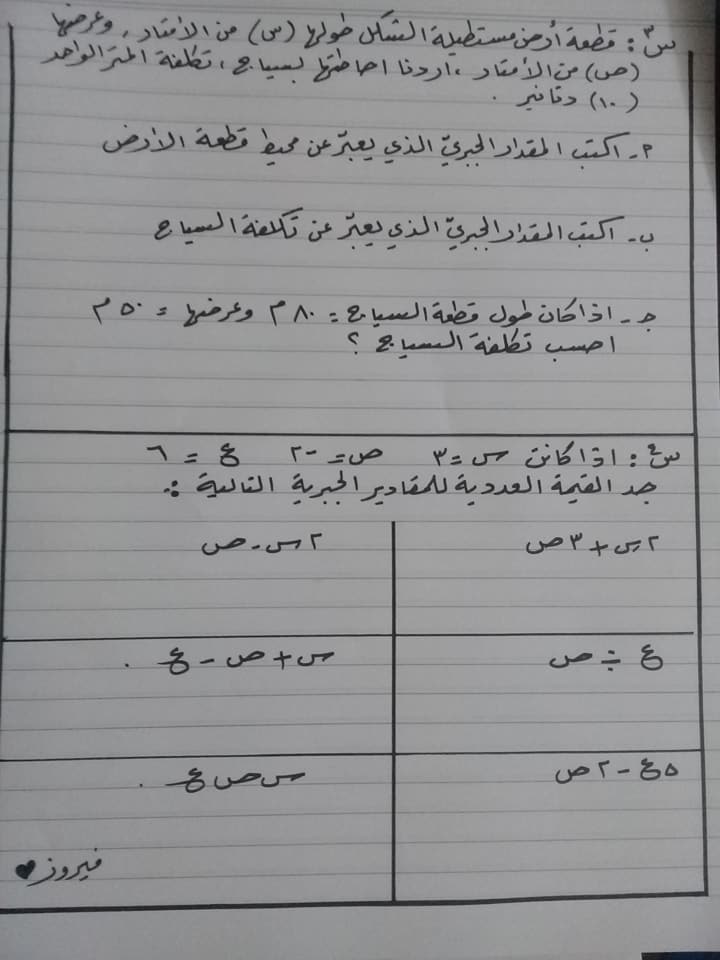 س٣: قطعة أرض مستطيلة الشكل طولها (س) من الأمتار، وعرضها
(ص) من الأمتار، اردنا احاطتها بسياج، تكلفة المتر الواحد
(١٠) دنانير.
٢- اكتب المقدار الجبريّ الذي يعبّر عن محيط قطعة الأرض
ب- اكتب المقدار الجبريّ الذي يعبّر عن تكلفة السياج
جـ- اذا كان طول قطعة السياج = ٨٠ م وعرضها = ٥٠ م
احسب تكلفة السياج؟
س٤: اذا كانت س = ٣ ص = -٢ ع = ٦
جد القيمة العددية للمقادير الجبرية التالية :.
٢س + ٣ص
٢س - ص
ع ÷ ص
س + ص - ع .
٥ع - ٢ص
س ص ع .
فيروز ♥